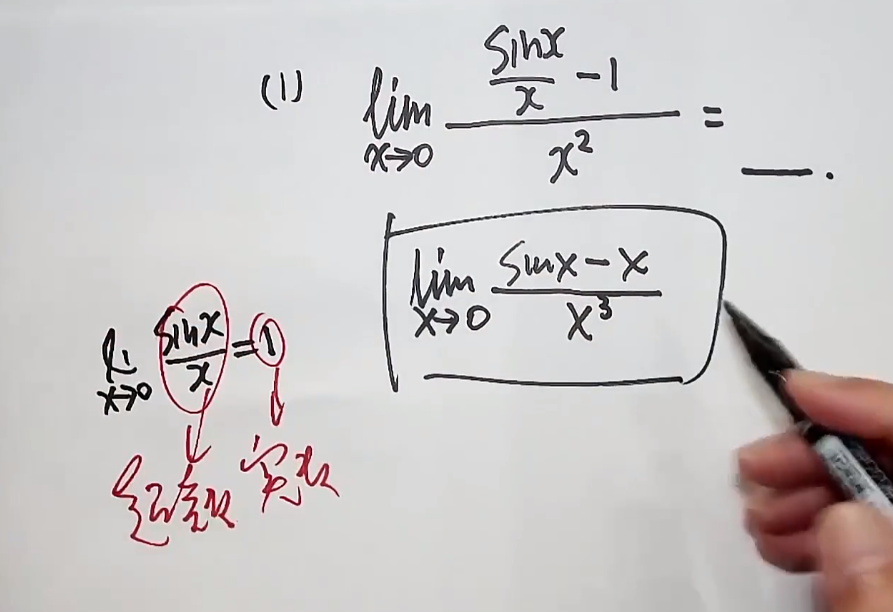 (1) lim x→0 (sinx/x - 1)/x² = ___.
lim x→0 (sinx - x)/x³
lim x→0 sinx/x = 1
超实数 实数